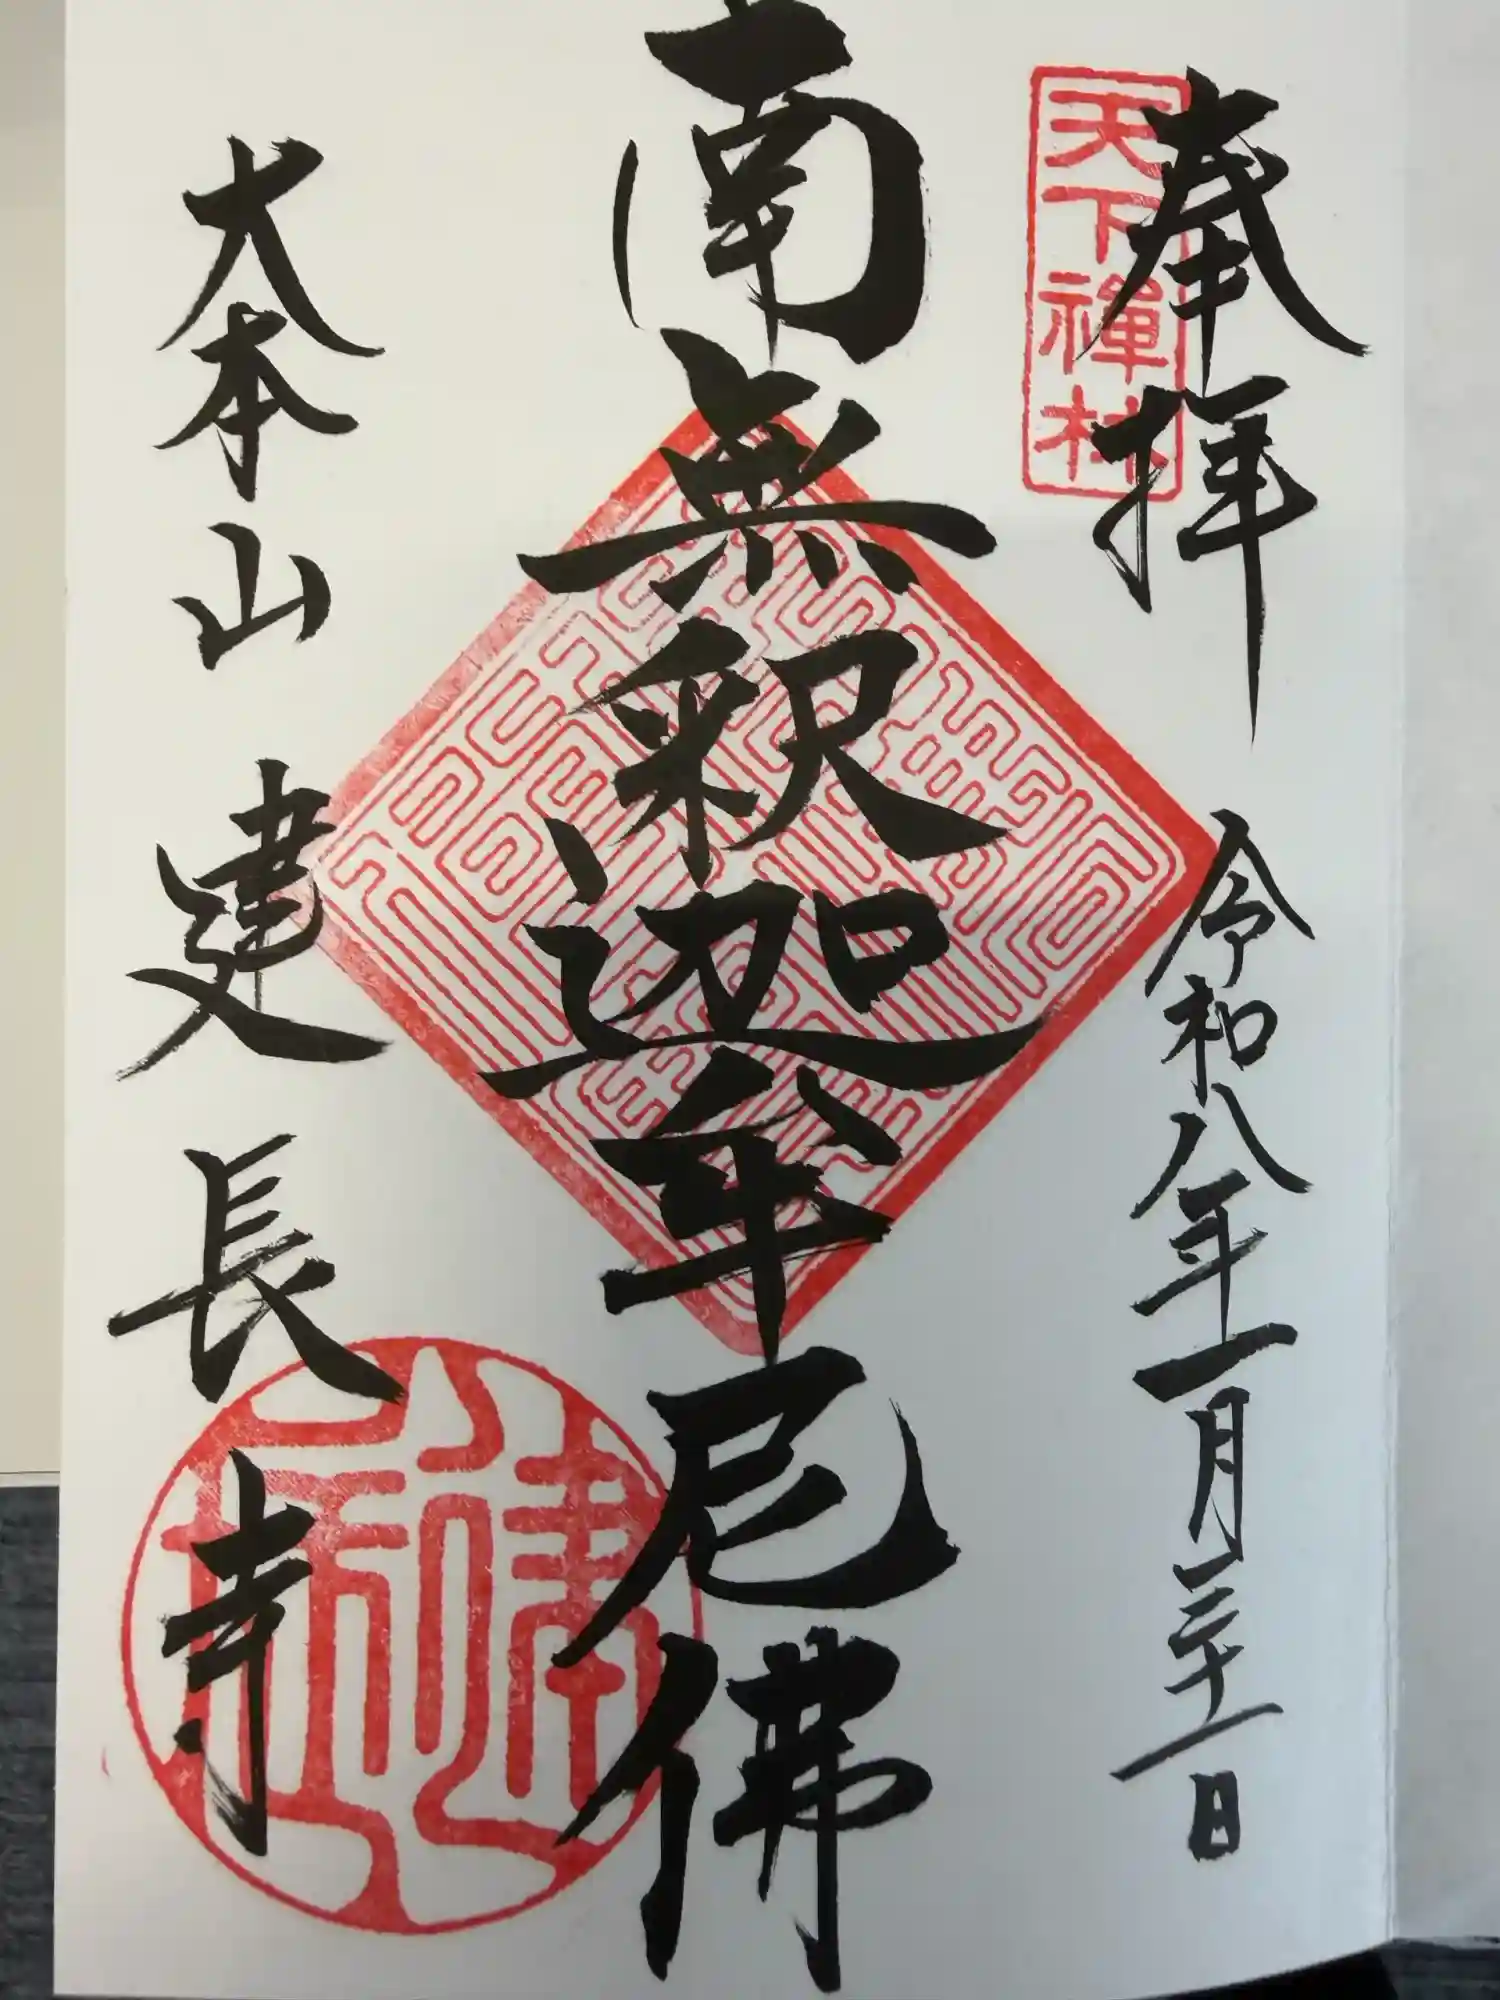 奉拝 令和八年一月二十一日
天下禅林
南無釈迦牟尼佛
大本山 建長寺